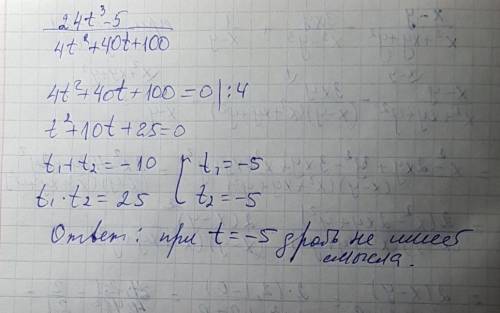 24t³-5
4t²+40t+100
4t²+40t+100=0|:4
t²+10t+25=0
t₁+t₂=-10
t₁·t₂=25
t₁=-5
t₂=-5
Ответ: при t=-5 дробь не имеет
смысла.